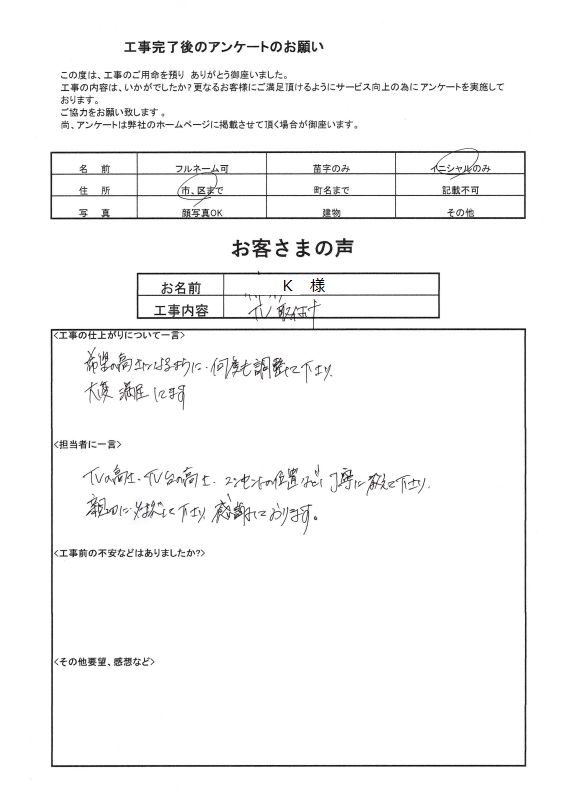 工事完了後のアンケートのお願い
この度は、工事のご用命を預り ありがとう御座いました。
工事の内容は、いかがでしたか？更なるお客様にご満足頂けるようにサービス向上の為にアンケートを実施して
おります。
ご協力をお願い致します 。
尚、アンケートは弊社のホームページに掲載させて頂く場合が御座います。
名 前 フルネーム可 苗字のみ イニシャルのみ
住 所 市、区まで 町名まで 記載不可
写 真 顔写真OK 建物 その他
お客さまの声
お名前 K 様
工事内容 TV 取付け
<工事の仕上がりについて一言>
希望の高さになるように、何度も調整して下さり、
大変 満足
<担当者に一言>
TVの高さ、TV台の高さ、コンセントの位置など、丁寧に教えて下さり、
親切に 対応して下さり 感謝しております。
<工事前の不安などはありましたか?>
<その他要望、感想など>